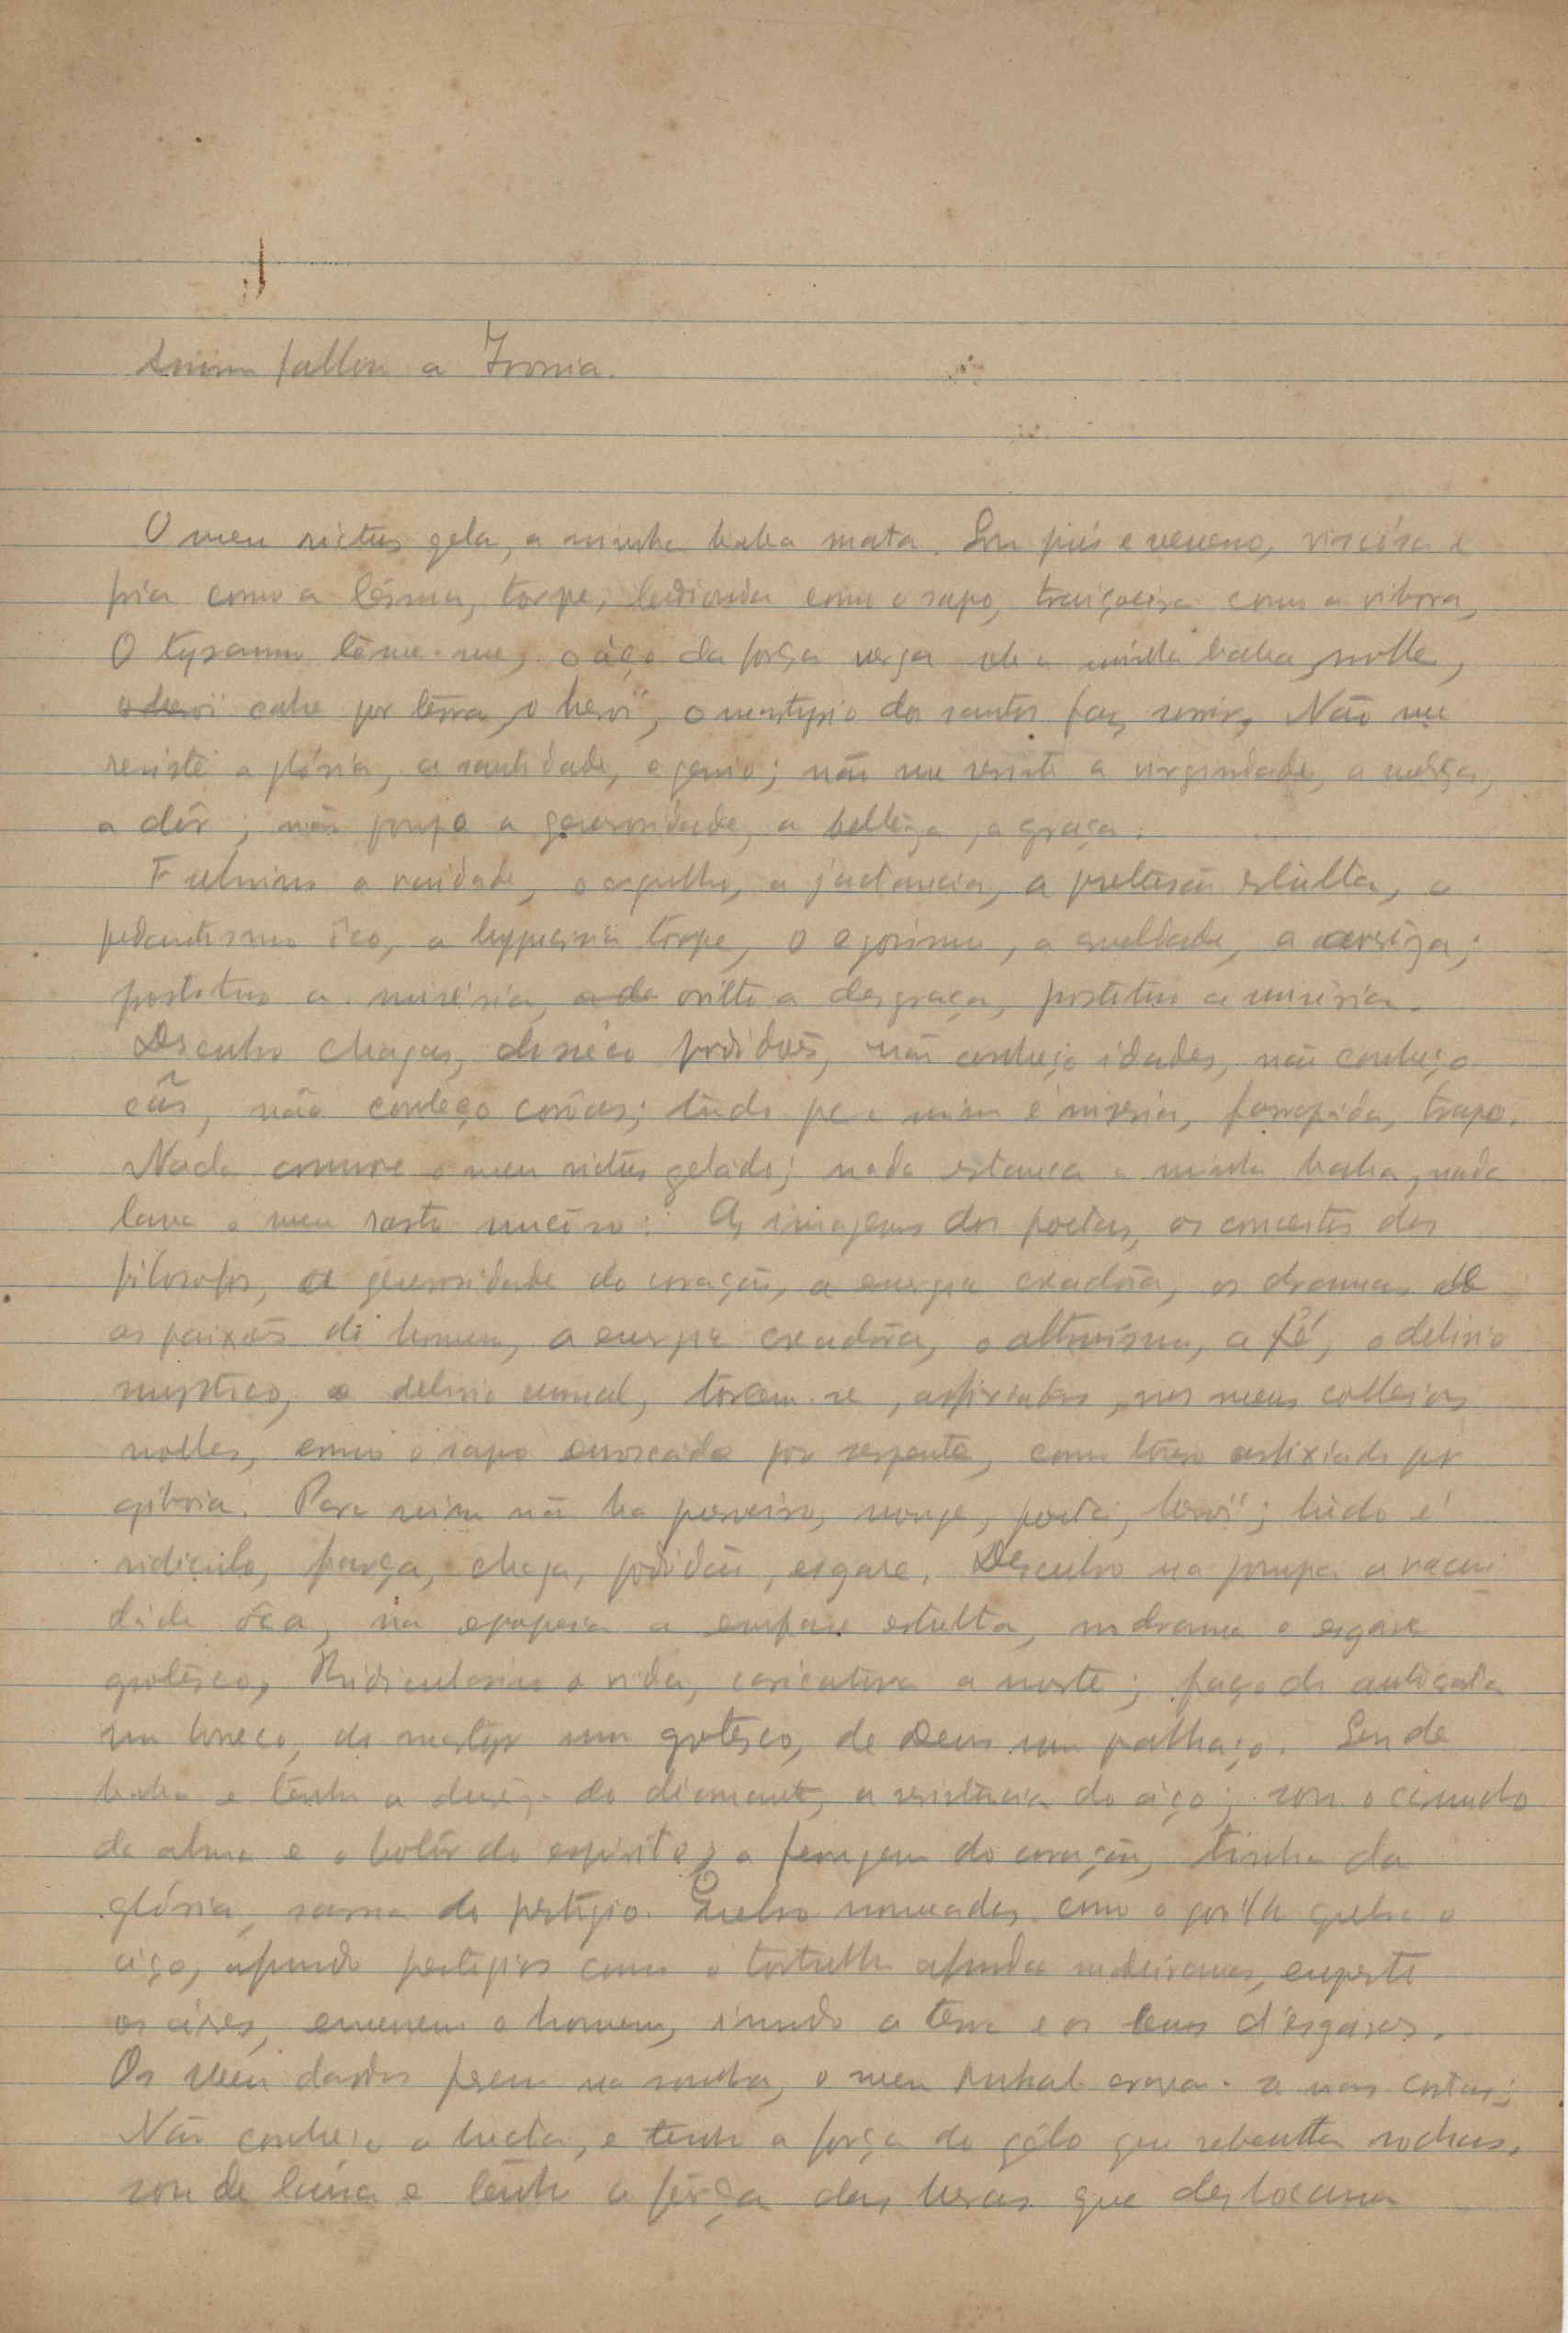 Assim fallou a Ironia.
O meu rictus gela, a minha baba mata. Sou pús e veneno, viscósa e
fria como a lésma, torpe, hedionda como o sapo, traiçoeira como a vibora,
O tyranno tême-me, o áço da força verga sob a minha baba, molle,
cahe por térra, o heroi, o martyrio dos santos faz sorrir, Não me
resiste a glória, a santidade, o genio; não me resiste a virgindade, a meiga,
a dôr; não poupo a generosidade, a belleza, a graça.
Fulmino a vaidade, o orgulho, a jactancia, a pretensão estulta, o
pedantismo ôco, a hypocrisia torpe, o egoismo, a crueldade, a
prostituo a miséria, a desgraça, prostituo a miséria.
Descubro chagas, podridões, não conheço idades, não conheço
cãs, não conheço corôas; tudo para mim é miseria, farrapida, trapo.
Nada comove o meu rictus gelado; nada estanca a minha baba, nada
lava o meu rasto As imagens dos poetas, os conceitos dos
filosofos, a generosidade do coração, a energia creadôra, os dramas de
as paixões do homem, a energia creadôra, o altruismo, a fé, o delirio
mystico, o delirio sexual, torcem-se, asfixiados, nos meus
molles, como o sapo enroscado por serpente, como touro asfixiado por
giboia. Para mim não ha monge, poeta, heroi; tudo é
ridiculo, farça, chaga, podridão, esgare. Descubro na pompa a vacui
dade ôca, na epopeia a emfase estulta, no drama o esgare
grotêsco, Ridicularizo a vida, caricaturo a morte; faço do
um boneco, do martyr um grotêsco, de Deus um palhaço. Sou de
baba e tenho a durêza do diamante, a resistencia do aço; sou o
da alma e o bolôr do espirito; a ferrugem do coração, tinha da
glória, sarna do prestigio. Quebro como o quebra o
aço, afundo prestigios como o tortulho afunda empesto
os áres, enveneno o homem, inundo a terra e os ceus d'esgares.
Os meus dardos ferem na sombra, o meu punhal crava-se nas costas;
Não conheço a lucta, e tenho a força do gêlo que rebenta rochas,
sou de e tenho a fôrça das heras que deslocam